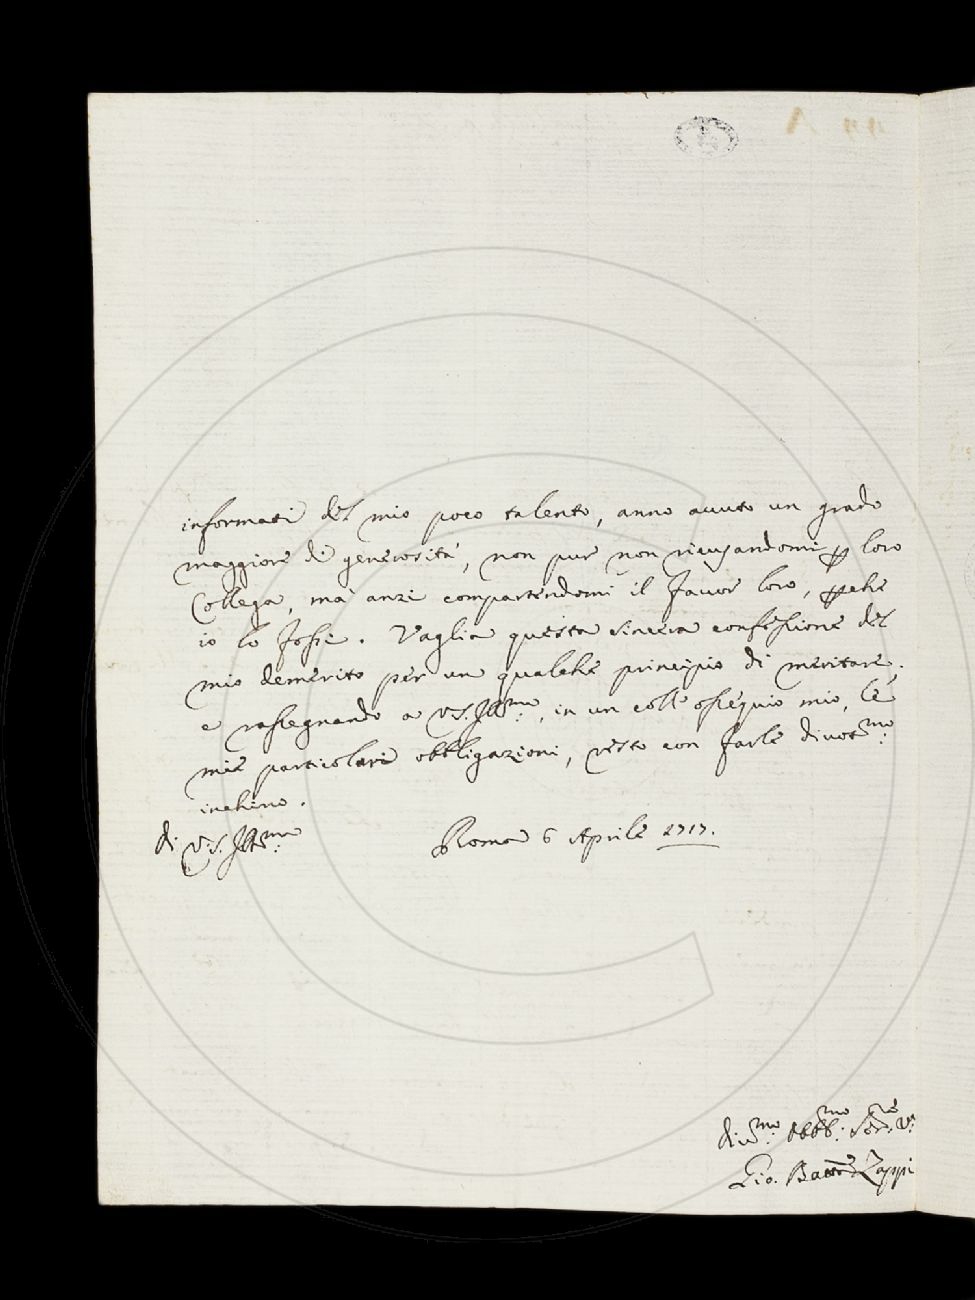 informati del mio poco talento, anno avuto un grado
maggiore di generosità, non pur non ricusandomi p loro
Collega, mà anzi compartendomi il favor loro, pche
io lo fossi. Vaglia questa sincera confessione del
mio demerito per un qualche principio di meritare.
e rassegnando a V.S. Ill:mo, in un coll'ossequio mio, le
mie particolari obbligazioni, resto con farle divot:mo
inchino.
di V.S. Ill:ma Roma 6 Aprile 1717.
div:mo obbl:mo Ser:re v:o
Gio. Batt:a Zappi